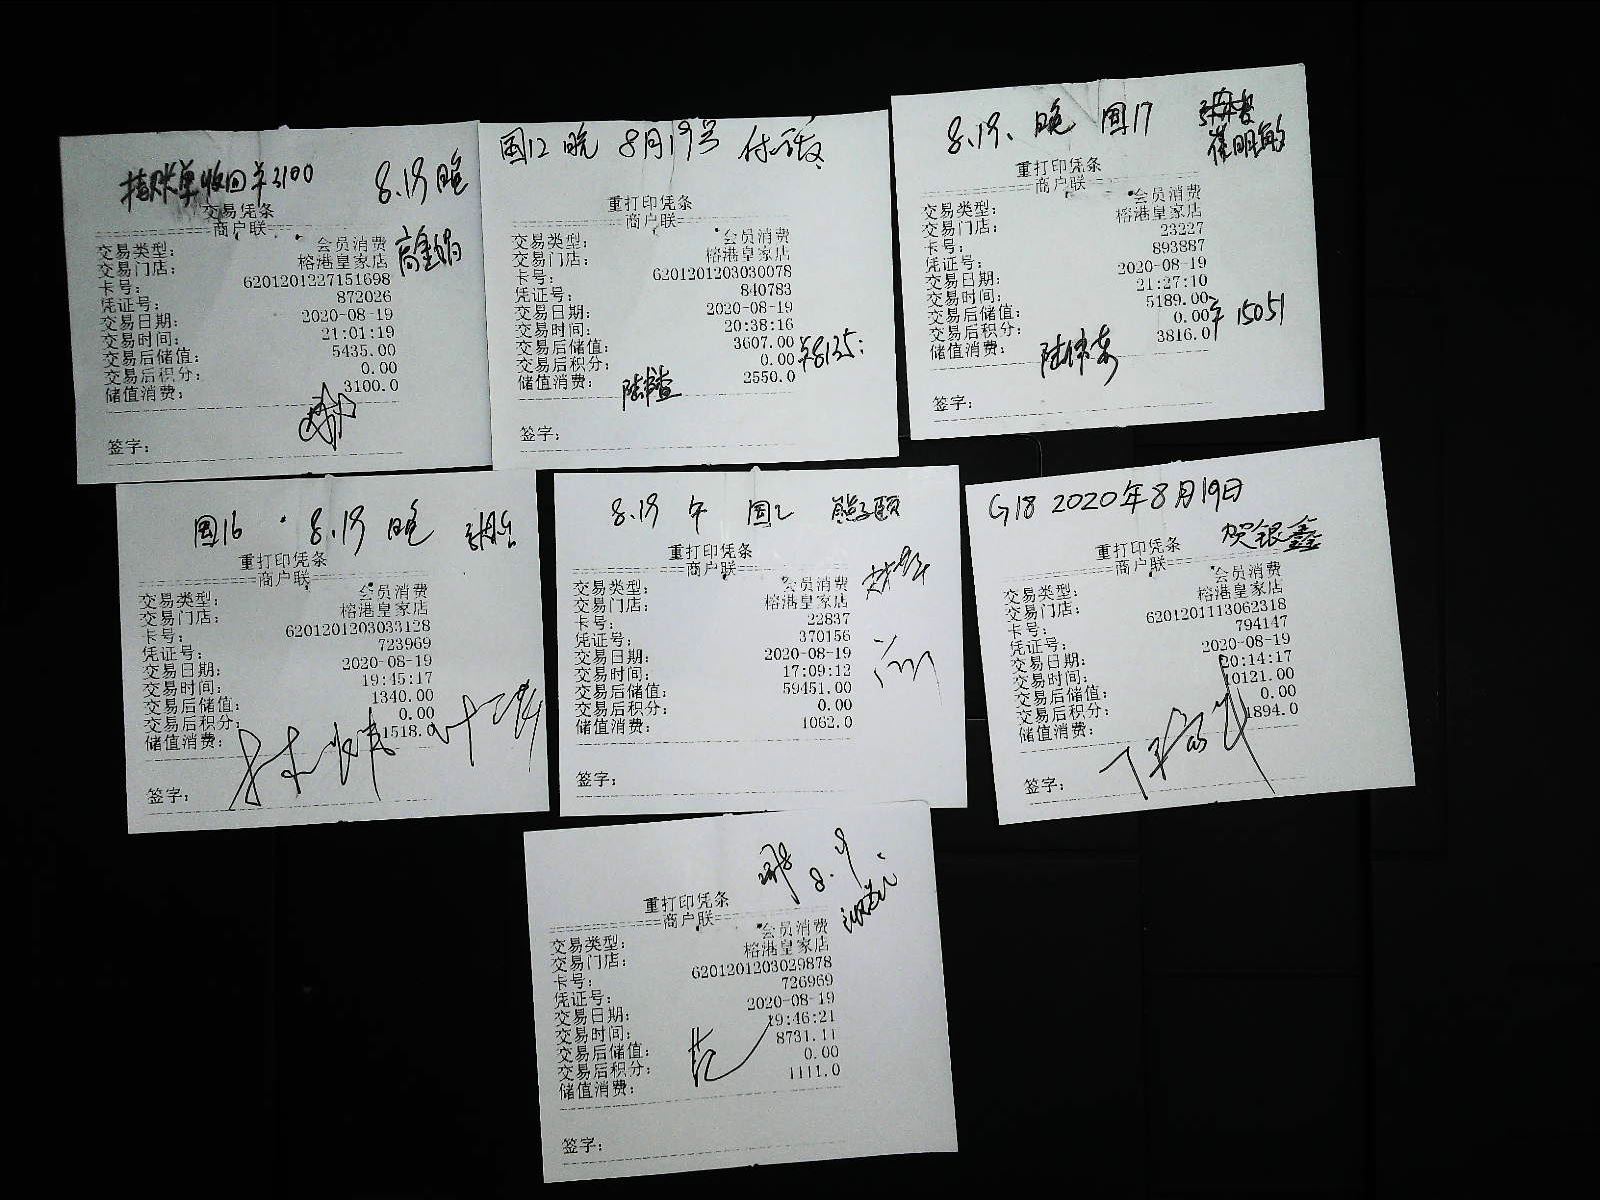 挂账单收回¥3100
8.19 晚
交易凭条
商户联
交易类型: 会员消费
交易门店: 榕港皇家店
卡号: 6201201227151698
凭证号: 872026
交易日期: 2020-08-19
交易时间: 21:01:19
交易后储值: 5435.00
交易后积分: 0.00
储值消费: 3100.0
签字:
国12 晚 8月19号
重打印凭条
商户联
交易类型: 会员消费
交易门店: 榕港皇家店
卡号: 6201201203030078
凭证号: 840783
交易日期: 2020-08-19
交易时间: 20:38:16
交易后储值: 3607.00
交易后积分: 0.00
储值消费: 2550.0
¥8135:
签字:
8.19. 晚 国17
崔明敏
重打印凭条
商户联
交易类型: 会员消费
交易门店: 榕港皇家店
卡号: 23227
凭证号: 893887
交易日期: 2020-08-19
交易时间: 21:27:10
交易后储值: 5189.00
交易后积分: 0.00
储值消费: 3816.0
¥15051
陆伟东
签字:
国16 8.19 晚
重打印凭条
商户联
交易类型: 会员消费
交易门店: 榕港皇家店
卡号: 6201201203033128
凭证号: 723969
交易日期: 2020-08-19
交易时间: 19:45:17
交易后储值: 1340.00
交易后积分: 0.00
储值消费: 1518.0
签字:
8.19 午 国2 熊子颐
重打印凭条
商户联
交易类型: 会员消费
交易门店: 榕港皇家店
卡号: 22837
凭证号: 370156
交易日期: 2020-08-19
交易时间: 17:09:12
交易后储值: 59451.00
交易后积分: 0.00
储值消费: 1062.0
签字:
G18 2020年8月19日
贺银鑫
重打印凭条
商户联
交易类型: 会员消费
交易门店: 榕港皇家店
卡号: 6201201113062318
凭证号: 794147
交易日期: 2020-08-19
交易时间: 20:14:17
交易后储值: 10121.00
交易后积分: 0.00
储值消费: 1894.0
签字:
8.19.
重打印凭条
商户联
交易类型: 会员消费
交易门店: 榕港皇家店
卡号: 6201201203029878
凭证号: 726969
交易日期: 2020-08-19
交易时间: 19:46:21
交易后储值: 8731.11
交易后积分: 0.00
储值消费: 1111.0
签字: